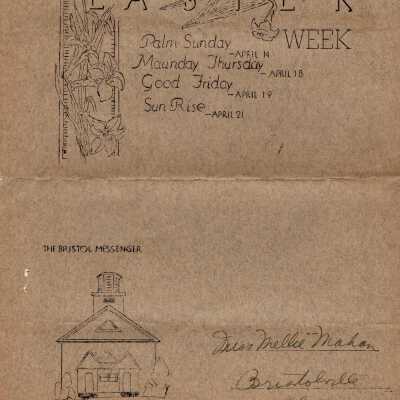 EASTER
WEEK
Palm Sunday
—APRIL 14
Maunday Thursday
—APRIL 18
Good Friday
—APRIL 19
Sun Rise
—APRIL 21
THE BRISTOL MESSENGER
Miss Mellie Mahan
Bristolville